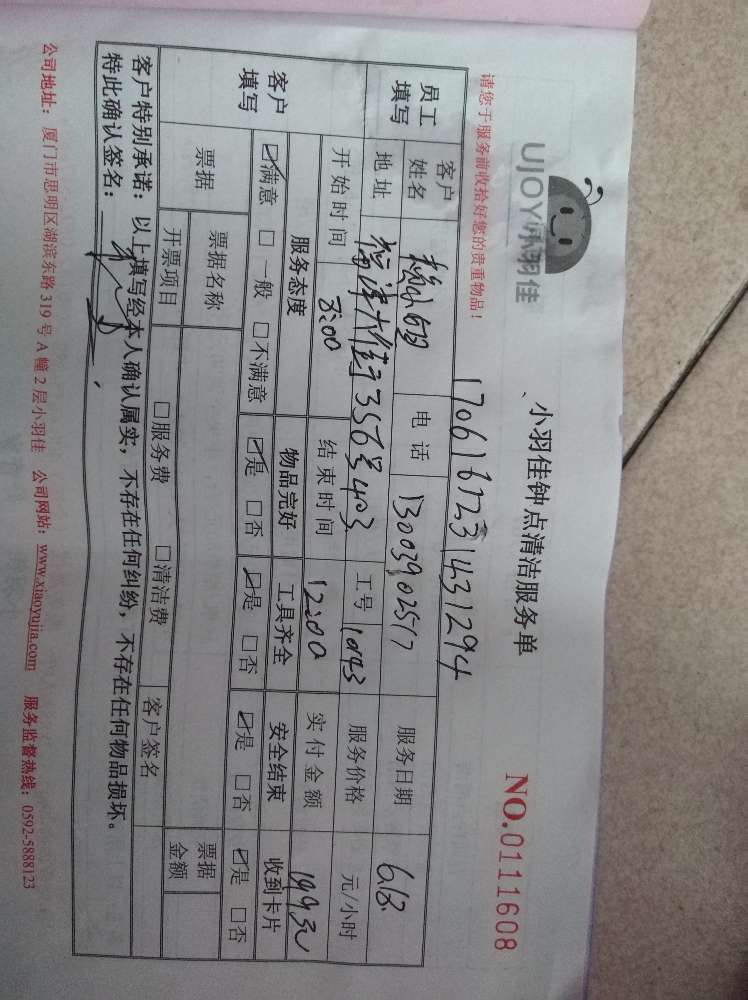 UJOY小羽佳
小羽佳钟点清洁服务单
NO.0111608
请您于服务前收拾好您的贵重物品！
1706167231431294
员工填写 客户姓名 电话 13003902517 服务日期 6.18
地址 356号403 工号 10143 服务价格 元/小时
开始时间 8:00 结束时间 12:00 实付金额 199元
客户填写 服务态度 物品完好 工具齐全 安全结束 收到卡片
☑满意 □一般 □不满意 ☑是 □否 ☑是 □否 ☑是 □否 ☑是 □否
票据 票据名称 □服务费 □清洁费 客户签名 票据金额
开票项目
客户特别承诺：以上填写经本人确认属实，不存在任何纠纷，不存在任何物品损坏。
特此确认签名：
公司地址：厦门市思明区湖滨东路319号A幢2层小羽佳 公司网站：www.xiaoyujia.com 服务监督热线：0592-5888123